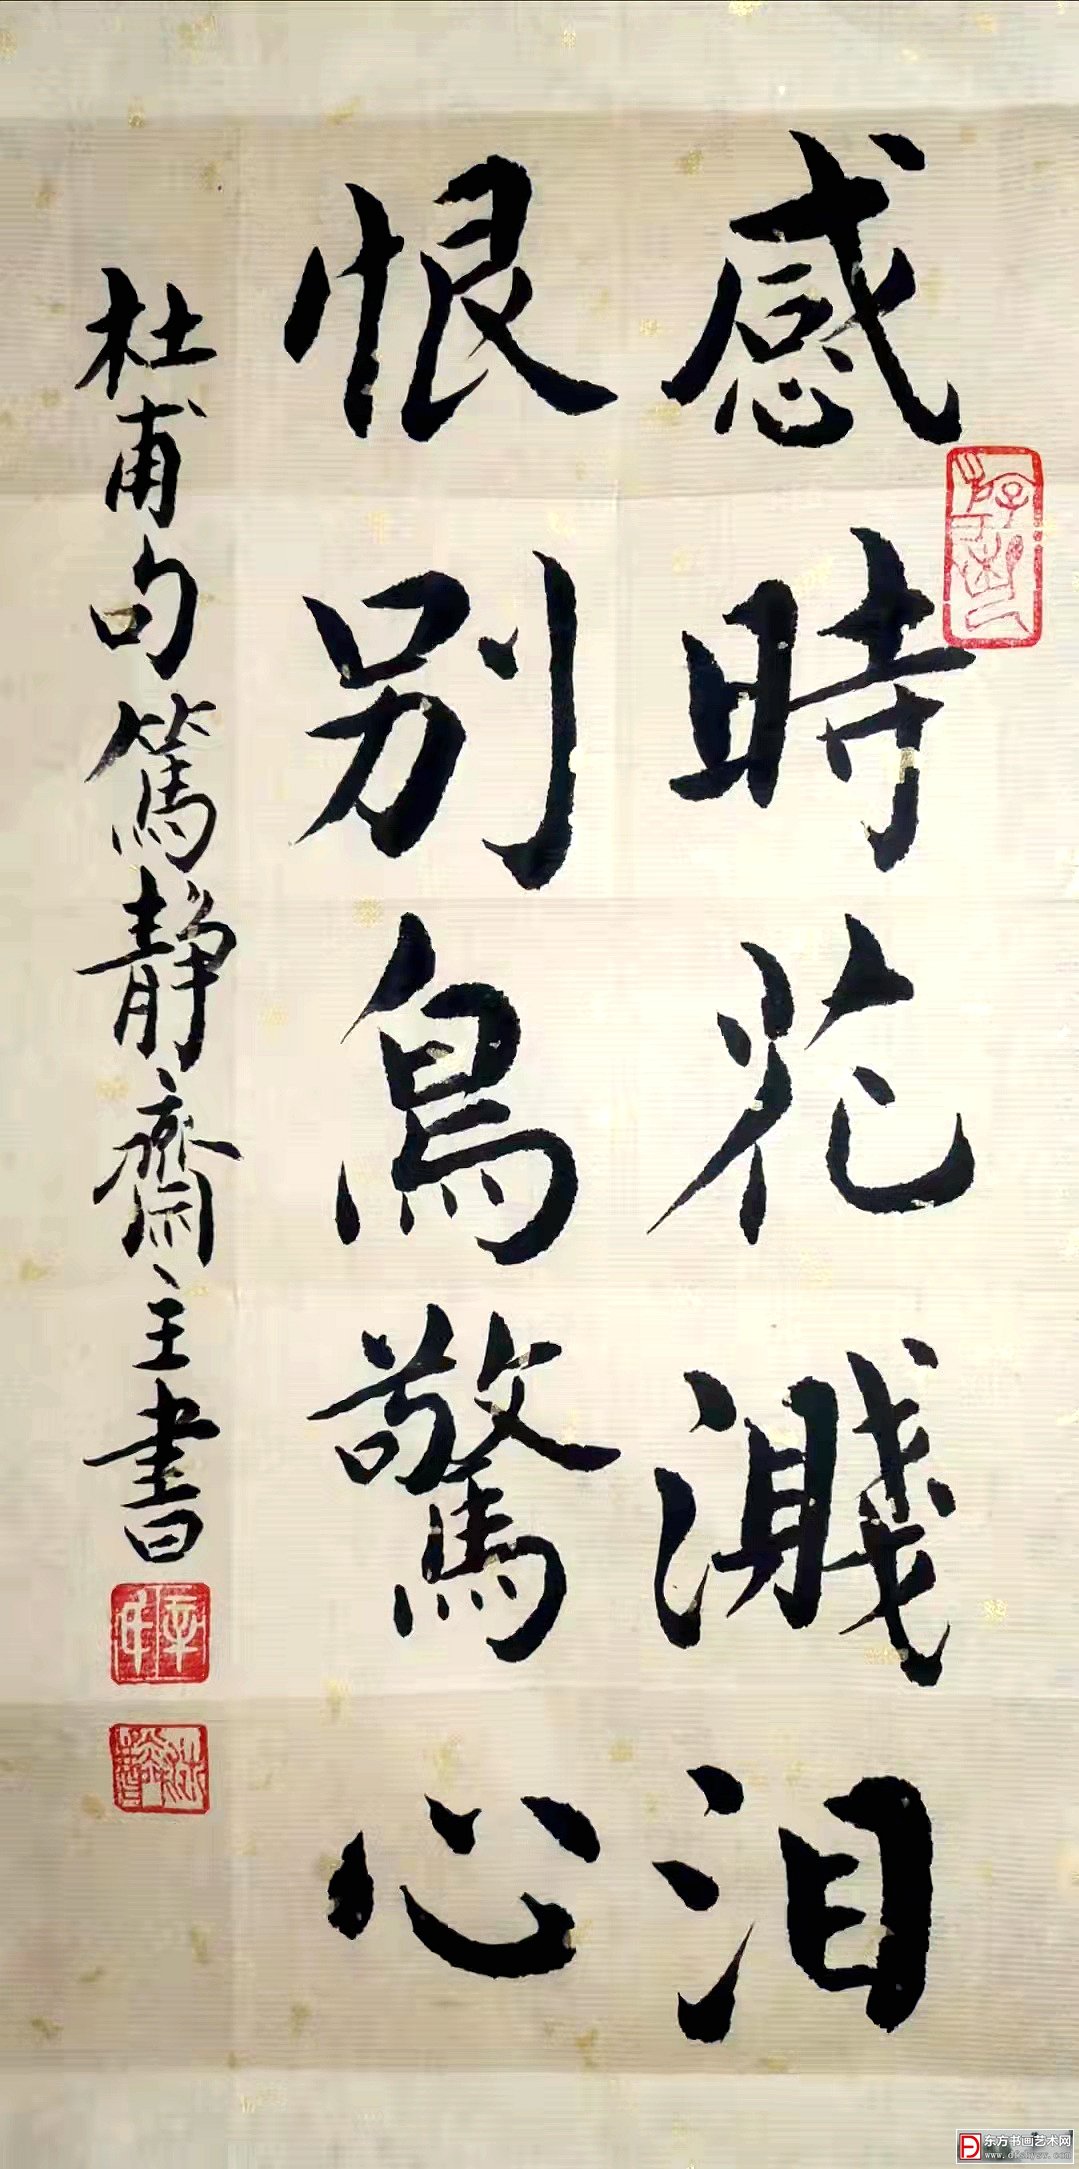 感時花濺泪
恨别鳥驚心
杜甫句篤靜齋主書
东方书画艺术网